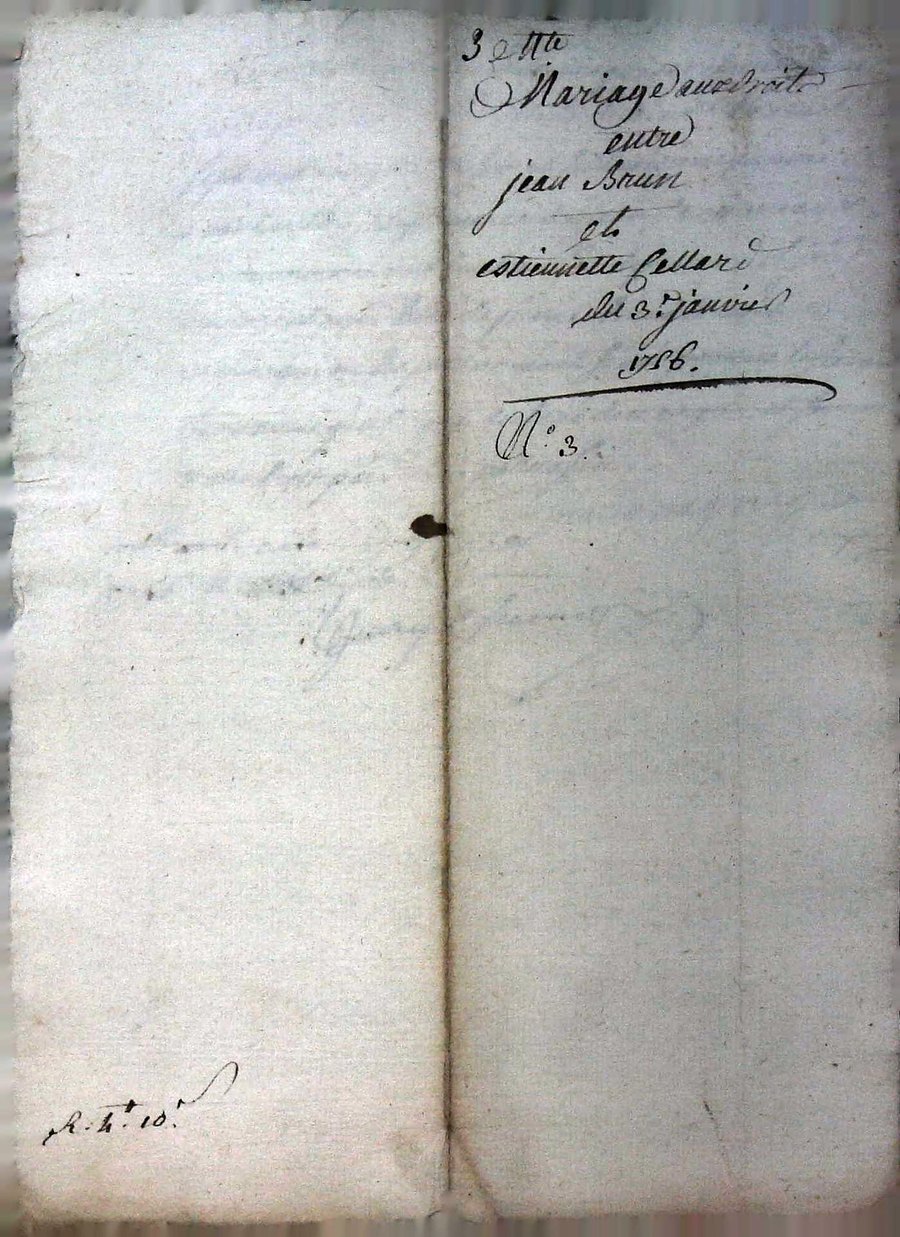 Mariage aux droits
entre
jean Brun
et
estiennette Cellard
du 3.e janvier
1756.
N.o 3.
R. 4# 10s